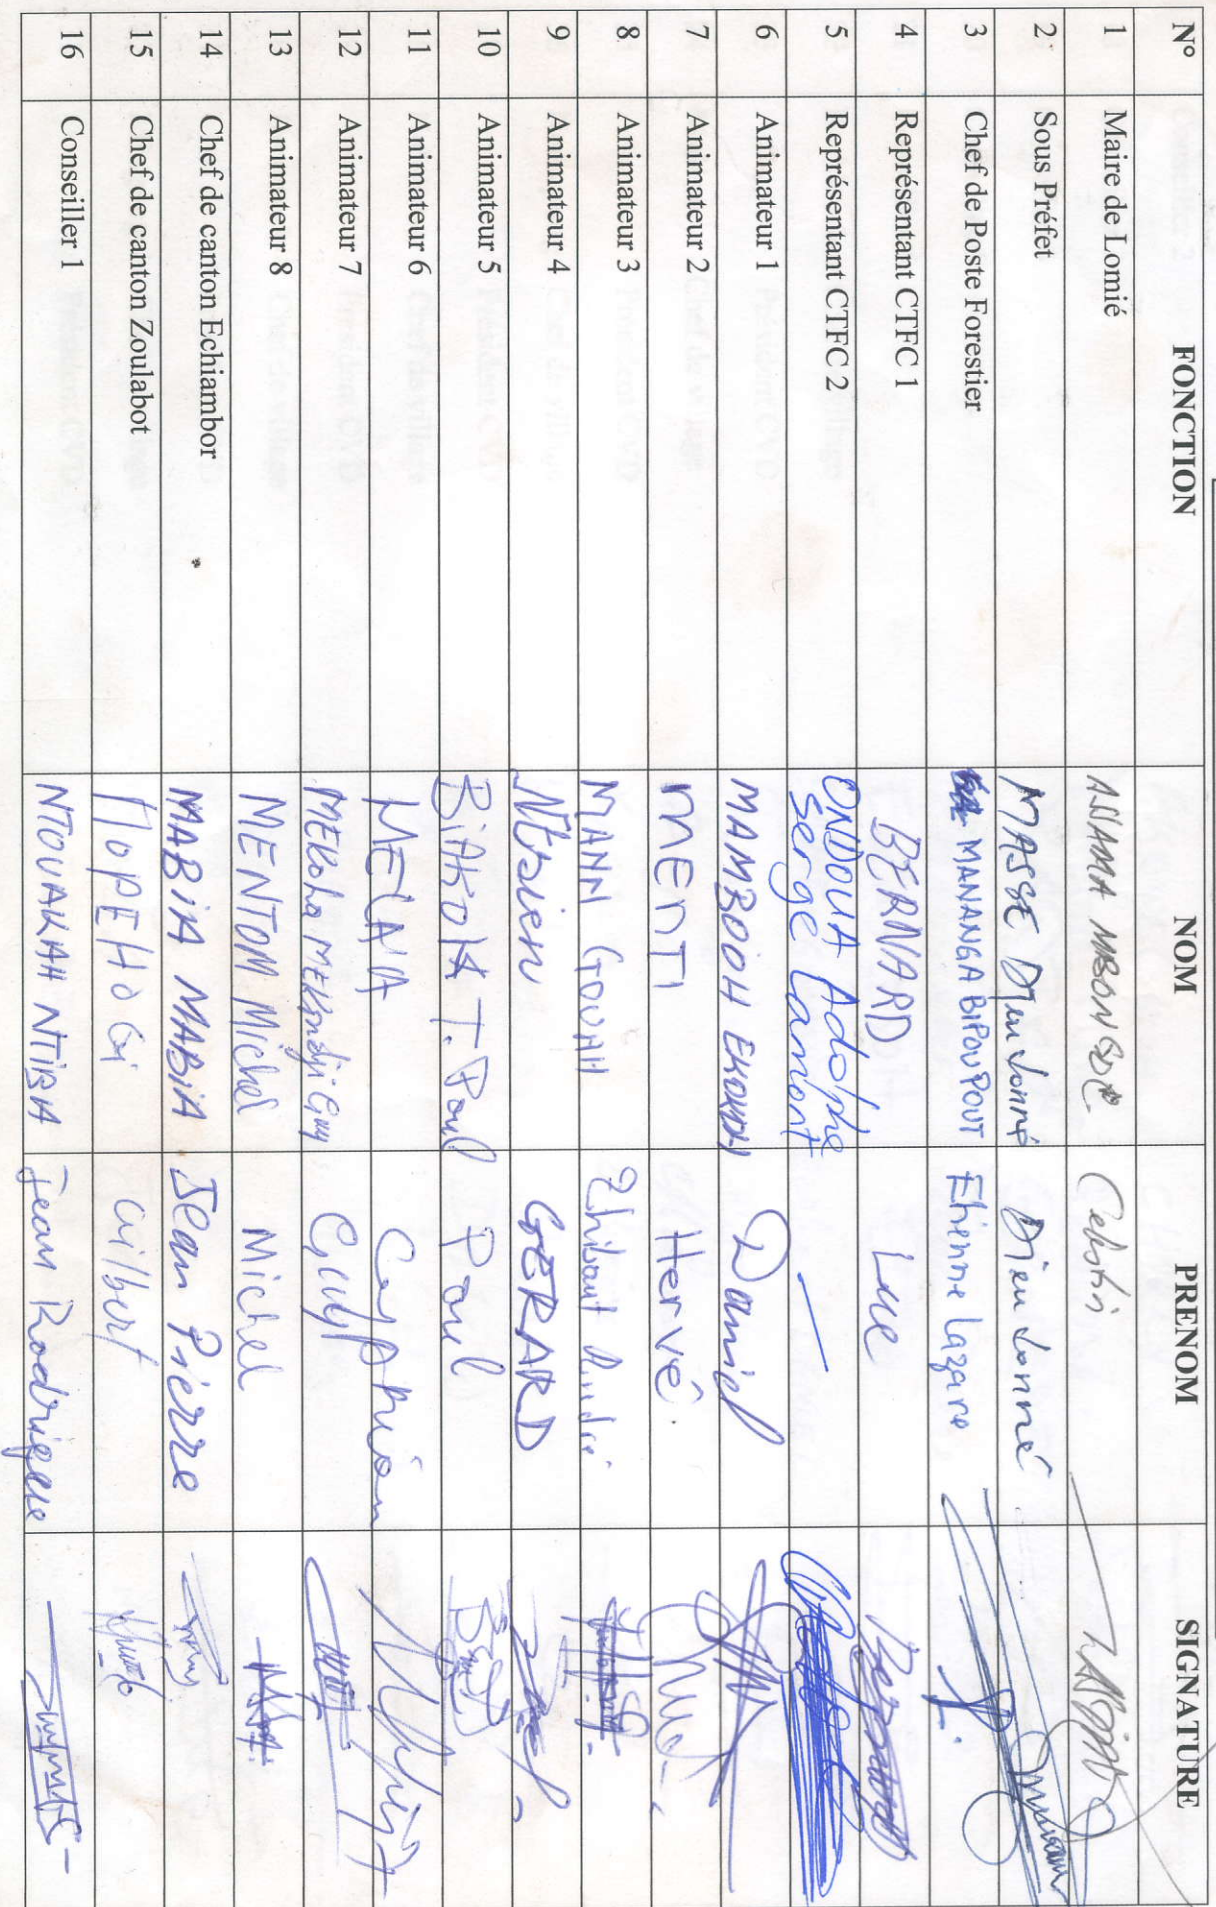 N° FONCTION NOM PRENOM SIGNATURE
1 Maire de Lomié ASSAMA Celestin
2 Sous Préfet MASSE Dieu donné Dieu donné
3 Chef de Poste Forestier MANANGA BIPOUPOUT Etienne Lazare
4 Représentant CTFC 1 BERNARD Luc Bernard
5 Représentant CTFC 2 ONDOUA Adolphe
Serge Lamont —
6 Animateur 1 MAMBOOH EKOUNDI Daniel
7 Animateur 2 MENTI Hervé
8 Animateur 3 MANN GOUAH Thibaut André
9 Animateur 4 Ntsien GERARD
10 Animateur 5 BIAKOA T. Paul Paul
11 Animateur 6 MELNA Cyprien
12 Animateur 7 MEKoho MEKondji Guy Guy
13 Animateur 8 MENTOM Michel Michel
14 Chef de canton Echiambor MABIA MABIA Jean Pierre
15 Chef de canton Zoulabot Gilbert
16 Conseiller 1 NTOUAKAH NTIBA Jean Rodrigue